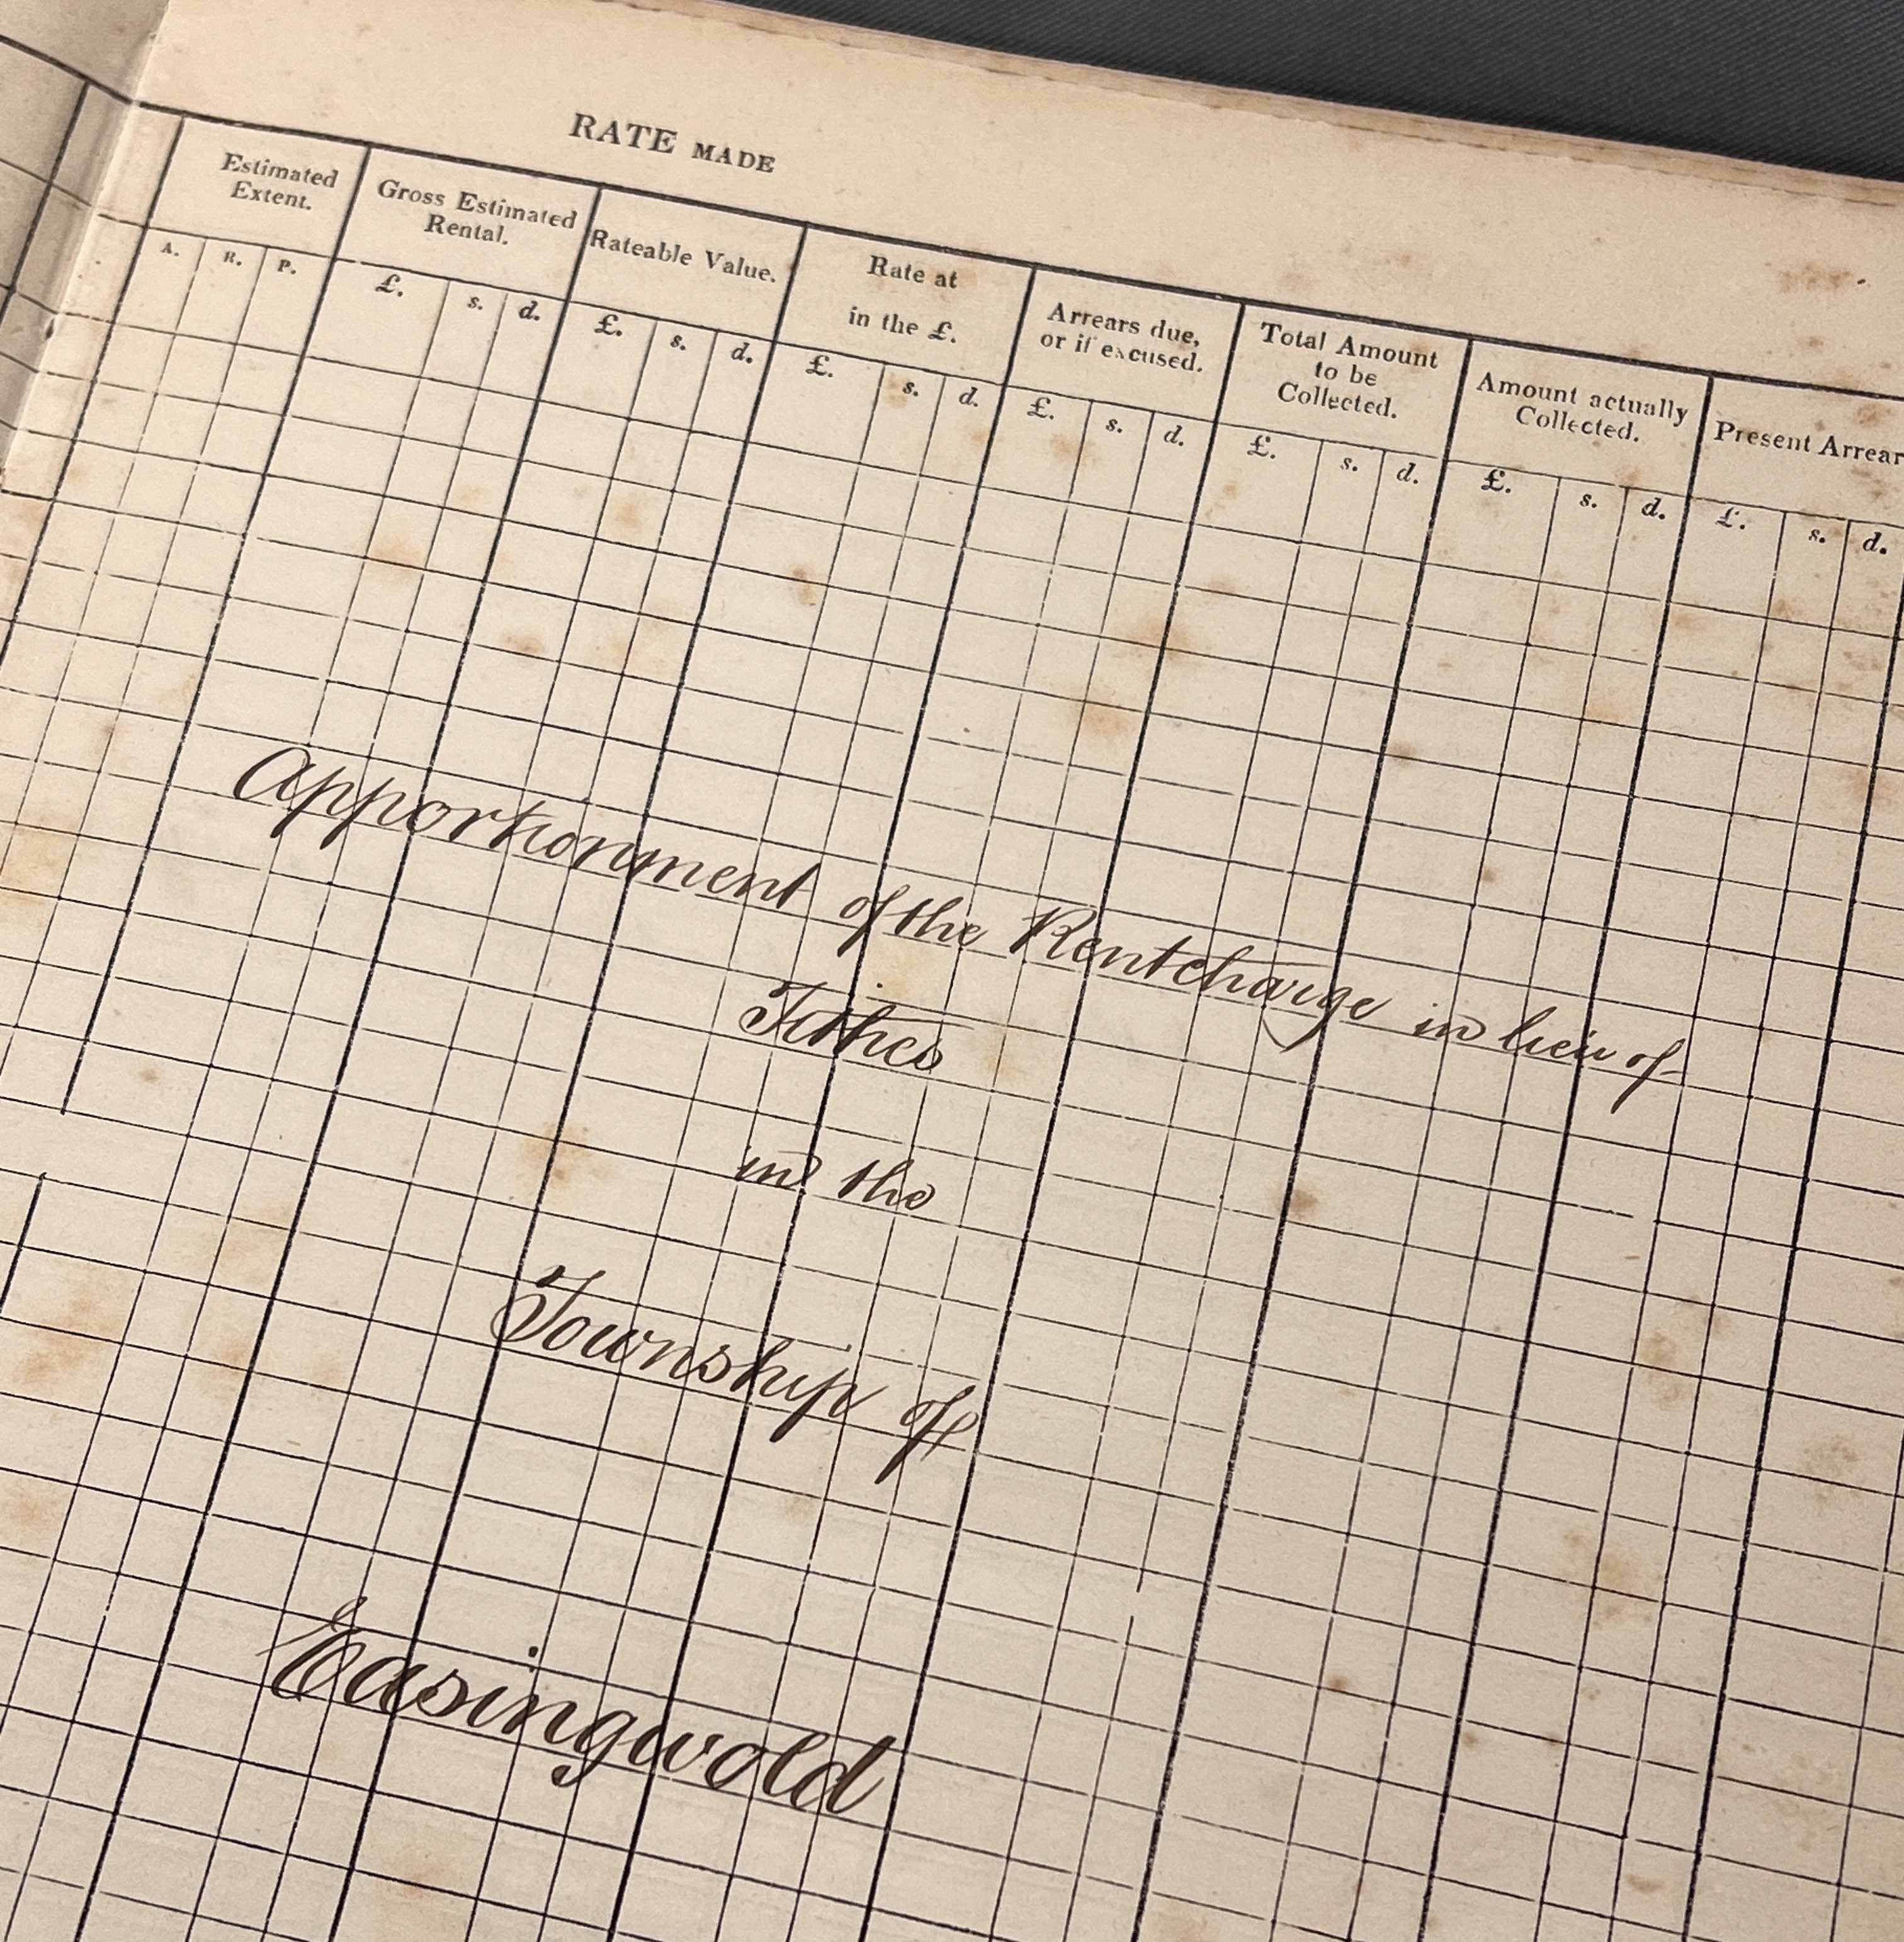 RATE MADE
Estimated
Extent.
Gross Estimated
Rental.
Rateable Value.
Rate at
in the £.
Arrears due,
or if excused.
Total Amount
to be
Collected.
Amount actually
Collected.
Present Arrear
A. R. P. £. s. d. £. s. d. £. s. d. £. s. d. £. s. d. £. s. d. £. s. d.
Apportionment of the Rentcharge in lieu of
Tithes
in the
Township of
Easingwold